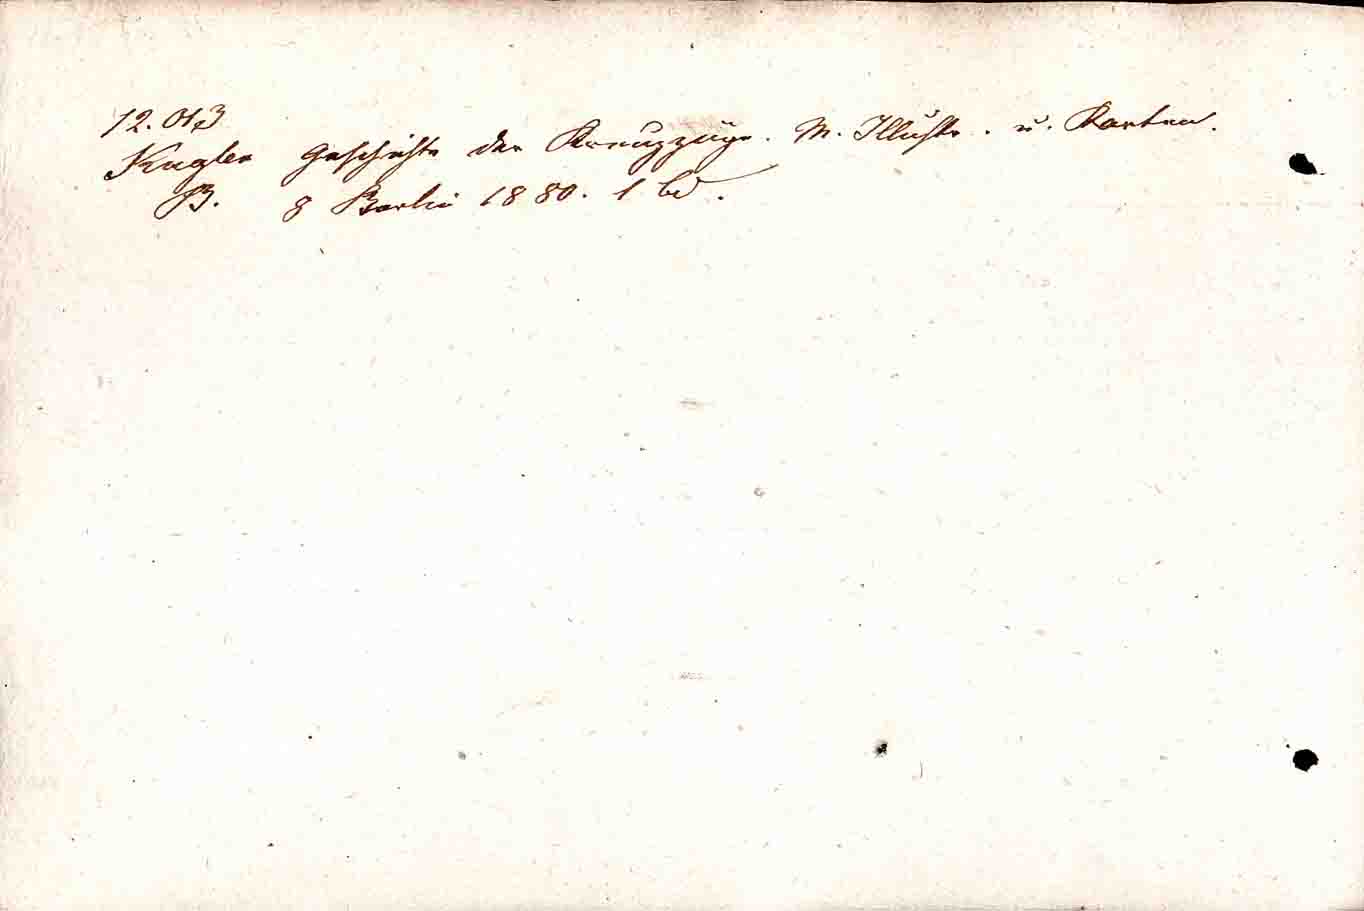 12.013
Kugler Geschichte der Kreuzzüge. M. Illustr. u. Karten.
B. 8 Berlin 1880. 1 bd.